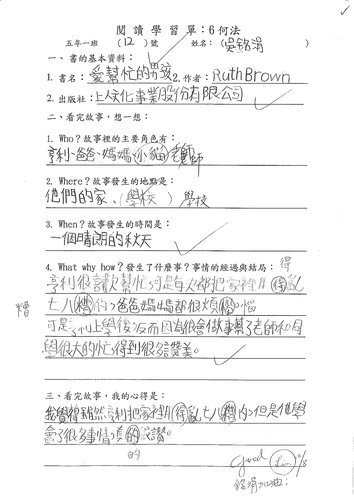 閱讀學習單:6何法
五年一班 (12)號 姓名:(吳銘涓)
一、書的基本資料:
1.書名:愛幫忙的男孩 2.作者:Ruth Brown
2.出版社:上人文化事業股份有限公司
二、看完故事,想一想:
1.Who?故事裡的主要角色有:
亨利、爸爸、媽媽、小貓、老師
2.Where?故事發生的地點是:
他們的家、(學校) 學校
3.When?故事發生的時間是:
一個晴朗的秋天
4.What why how?發生了什麼事?事情的經過與結局:得
亨利很喜歡幫忙可是每次都把家裡用得亂
糟 七八糟的,爸爸媽媽都很煩惱 惱
可是 上學後,反而因為很會做事幫了老師和同
學很大的忙得到很多讚美。
三、看完故事,我的心得是:
我覺得雖然亨利把家裡用得亂七八糟的,但是他學
會了很多事情,真的很讚。
的
Good
6/8
銘涓加油!